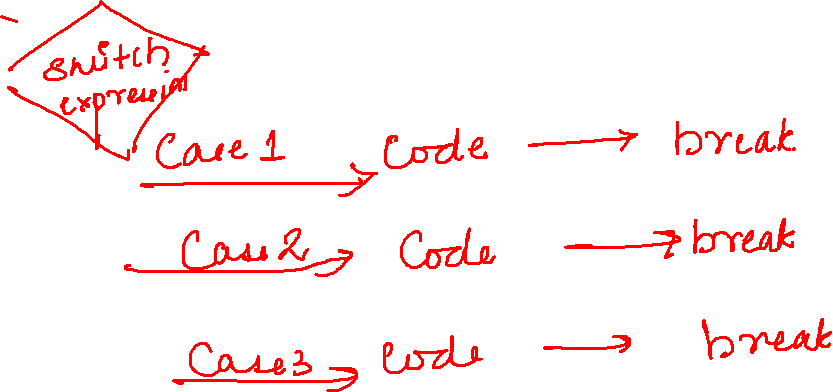 switch
expression
Case 1 Code break
Case 2 Code break
Case 3 Code break